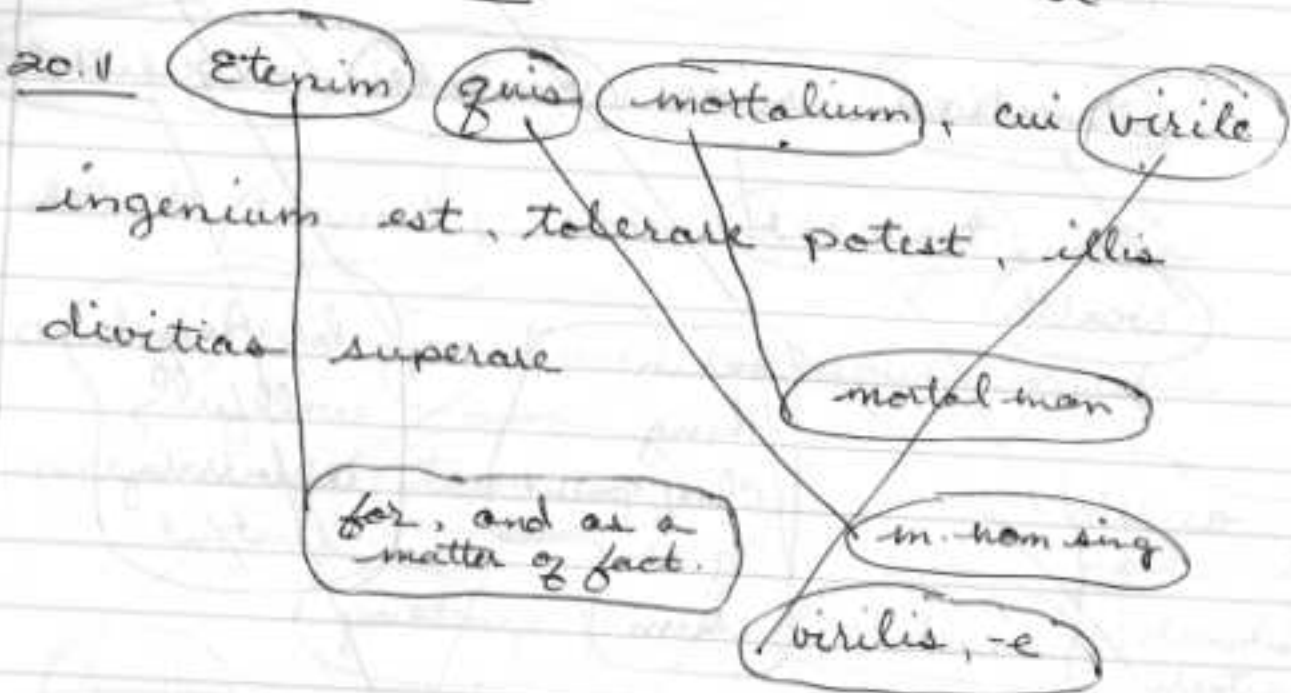 20.11 Etenim quis mortalium, cui virile
ingenium est, tolerare potest, illis
divitias superare
mortal man
for, and as a
matter of fact.
m. nom sing
virilis, -e